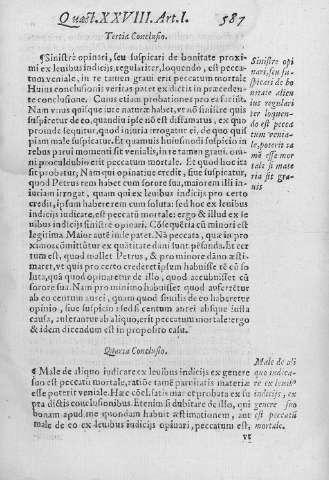 Quæst. XXVIII. Art. I. 587
Tertia Conclusio.
¶Sinistrè opinari, seu suspicari de bonitate proxi-
mi ex leuibus indicijs, regulariter loquendo, est pecca-
tum veniale, in re tamen graui erit peccatum mortale
Huius conclusionis veritas patet ex dictis in præceden-
te conclusione. Cuius etiam probationes pro ea sunt.
Nam vnus quisque iure naturæ habet, vt nõ sinistrè quis
suspicetur de eo, quandiu ipse nõ est diffamatus, ex quo
proinde sequitur, quod iniuria irrogatur ei, de quo quis
piam male suspicatur. Et quamuis huiusmodi suspicio in
rebus parui momenti sit venialis, in re tamen graui, omni
procul dubio erit peccatum mortale. Et quod hoc ita
sit probatur, Nam qui opinatiue credit, siue suspicatur,
quod Petrus rem habet cum sorore sua, maiorem illi in-
iuriam irrogat, quam qui ex leuibus indicijs pro certo
credit, ipsum habere rem cum soluta: sed hoc ex leuibus
indicijs iudicare, est peccatũ mortale: ergo & illud ex le
uibus indicijs sinistrè opinari. Cõsequẽtia cũ minori est
legitima. Maior autẽ inde patet. Nã peccata, quæ in pro
ximos cõmittũtur ex quãtitate dãni sunt pẽsanda. Et cer
tum est, quod mallet Petrus, & pro minore dãno æsti-
maret, vt quis pro certo crederet ipsum habuisse rẽ cũ so
luta, quã quod opinaretur de illo, quod accubuisset cũ
sorore sua. Nam pro minimo habuisset quod auferẽtur
ab eo centum aurei, quam quod similis de eo haberetur
opinio, siue suspicio: sed si centum aurei absque iusta
causa, auferantur ab aliquo, erit peccatum mortale: ergo
& idem dicendum est in proposito casu.
Sinistre opi
nari, seu su-
spicari de bo
nitate alien
ius regulari
ter loquen-
do est pecca
tum venia-
le, poterit ta
mẽ esse mor
tale si mate
ria sit gra-
uis
Quarta Conclusio.
¶ Male de aliquo iudicare ex leuibus indicijs ex genere
suo est peccatũ mortale, ratiõe tamẽ paruitatis materiæ
esse poterit veniale. Hæc cõcl. satis marẽt probata ex su
pra dictis conclusionibus. Etenim si dubitare de illo, qui
bonam apud me quondam habuit æstimationem, aut
male de eo ex leuibus indicijs opinari, peccatum est,
Male de ali
quo iudica-
re ex leuibᵒ
indicijs, ex
genere suo
est peccatũ
mortale.
vt